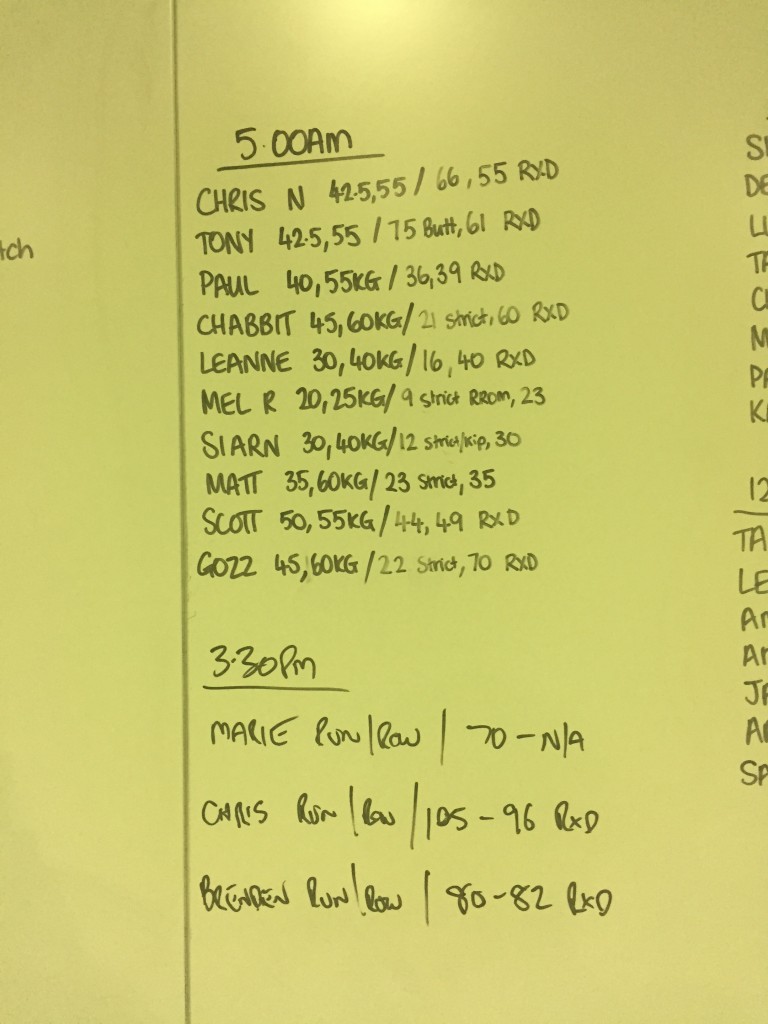 tch
5.00AM
CHRIS N 42.5,55 / 66,55 RXD
TONY 42.5,55 / 75 Butt, 61 RXD
PAUL 40,55KG / 36,39 RXD
CHABBIT 45,60KG/ 21 strict, 60 RXD
LEANNE 30,40KG/16,40 RXD
MEL R 20,25KG/ 9 strict RROM, 23
SIARN 30,40KG/12 strict/kip, 30
MATT 35,60KG/ 23 strict, 35
SCOTT 50,55KG / 44, 49 RXD
GOZZ 45,60KG /22 strict, 70 RXD
3.30Pm
MARIE RUN/ROW / 70 - N/A
CHRIS RUN/ROW /105 - 96 RXD
BRENDEN RUN/ROW / 80-82 RXD
SI
DE
LI
TA
CH
M
PA
KA
12
TA
LE
JA
SP